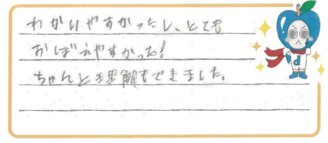 わかりやすかったし、とても
おぼえやすかった!
ちゃんと理解もできました。
d